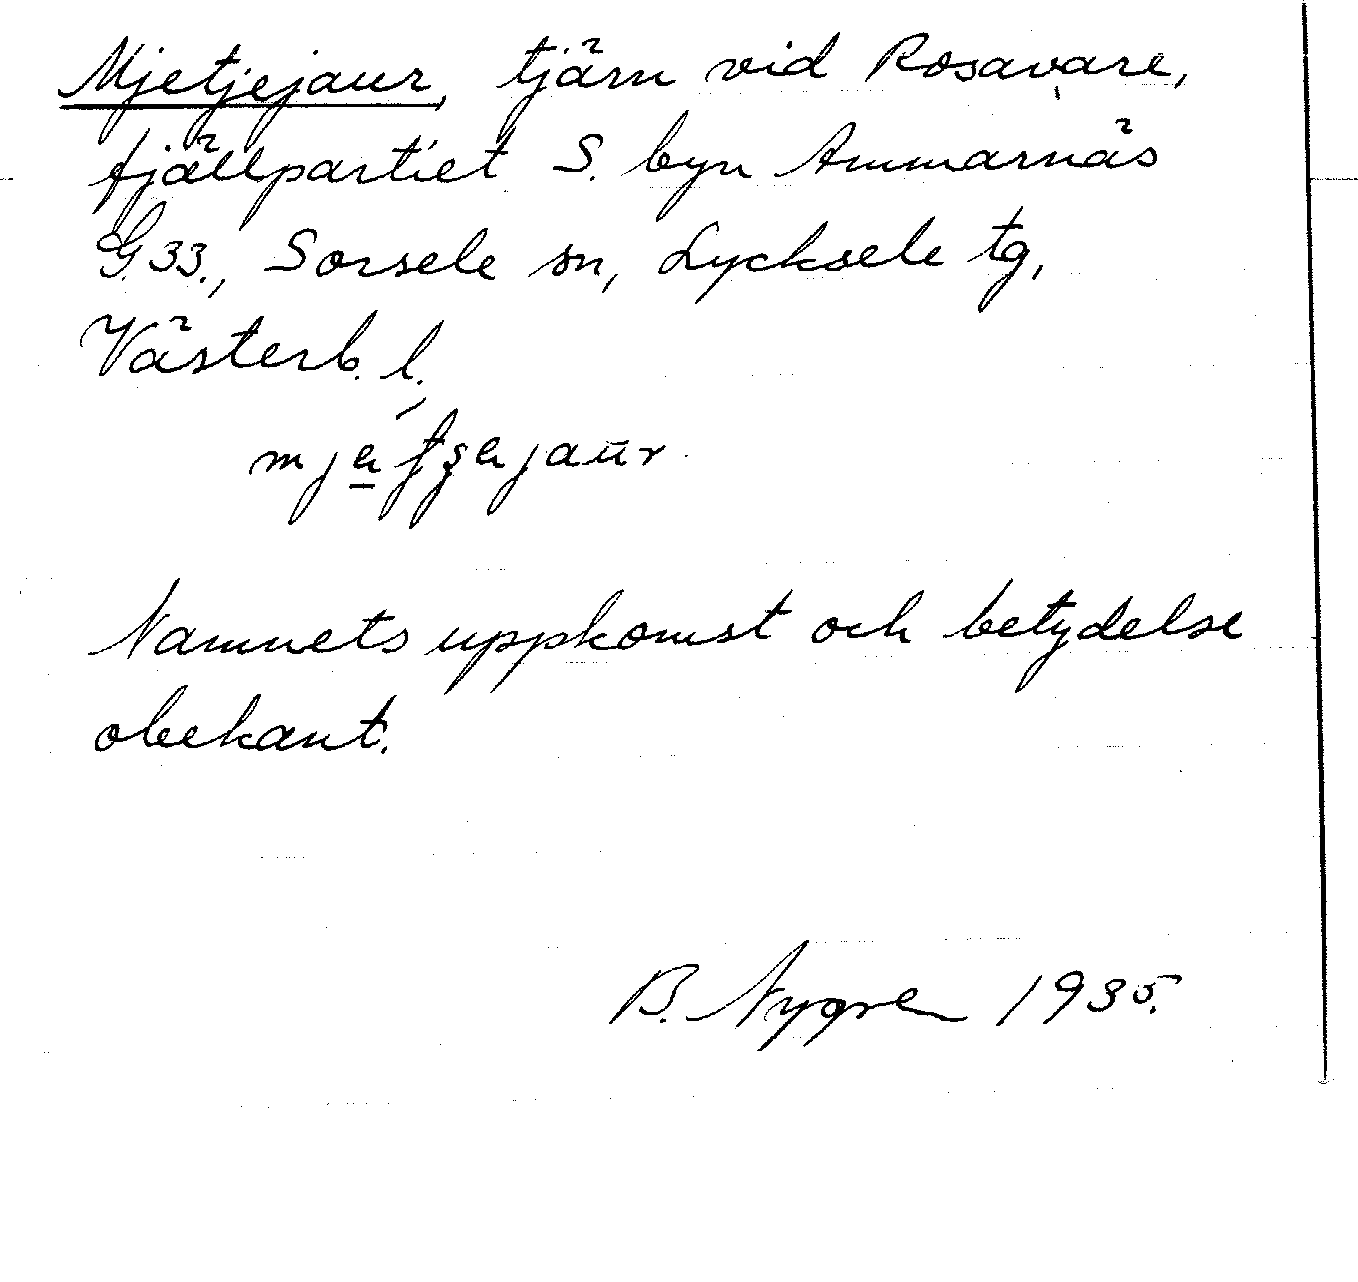 Mjetjejaur, tjärn vid Rosavare,
fjällpartiet S. byn Ammarnäs
G.33., Sorsele sn, Lycksele tg,
Västerb. l.
Namnets uppkomst och betydelse
obekant.
B. Nygren 1935.